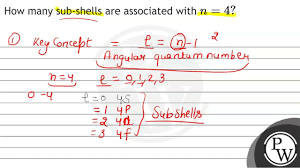 How many sub-shells are associated with n = 4?
① Key Concept = l = n-1 2
Angular quantum number
n=4 l = 0,1,2,3
0-4 l=0 4S
=1 4P
=2 4d
=3 4f
Subshells
PW